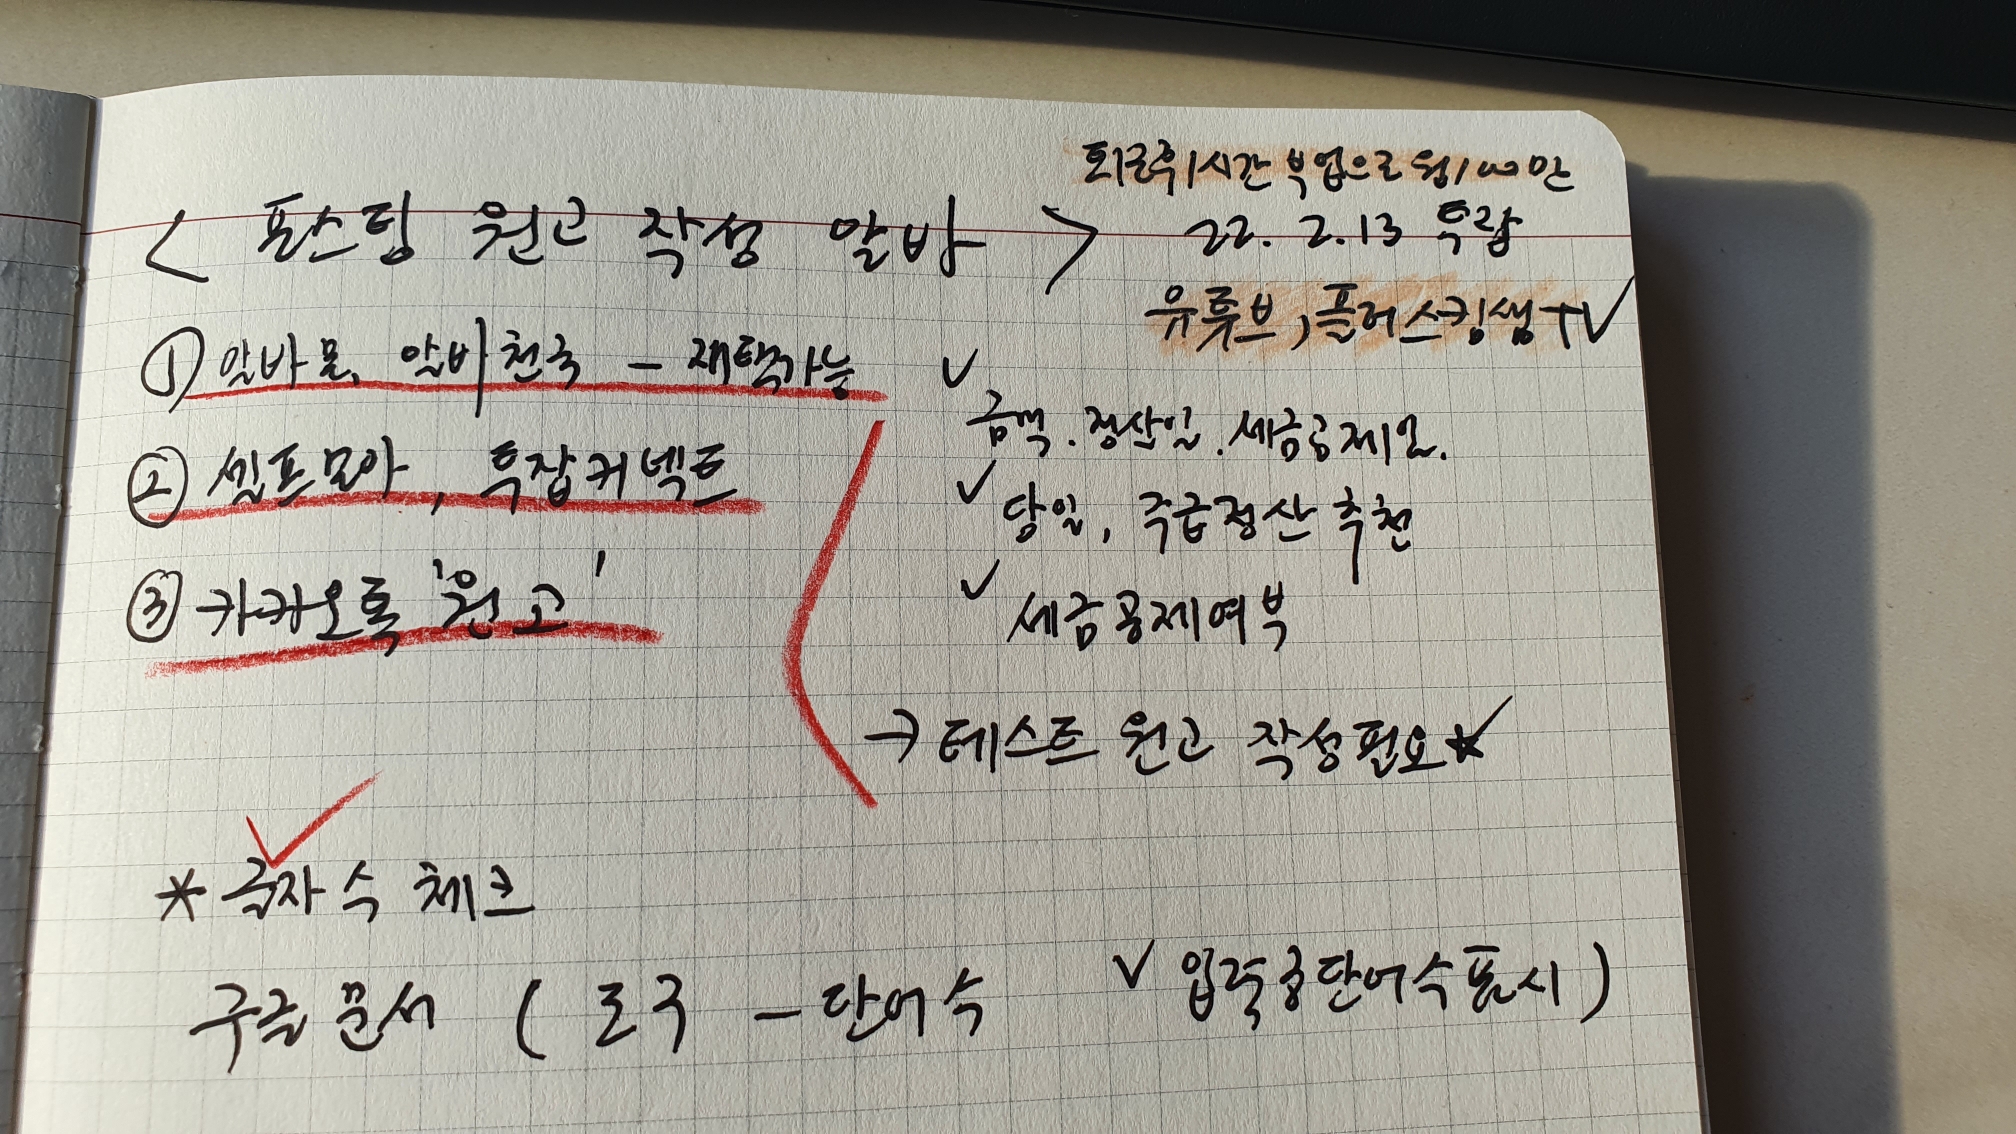 퇴근후1시간 부업으로 월100만
< 포스팅 원고 작성 알바 >
22. 2. 13 투잡
유튜브, 플러스킹쌤TV
① 알바몬, 알바천국 - 재택가능
✓ 금액. 정산일. 세금공제일.
② 셀프모아, 투잡커넥트
✓ 당일, 주급정산 추천
③ 카카오톡 '원고'
✓ 세금공제여부
→ 테스트 원고 작성필요★
* 글자수 체크
구글문서 ( 도구 - 단어수 ✓ 입력중단어수표시 )